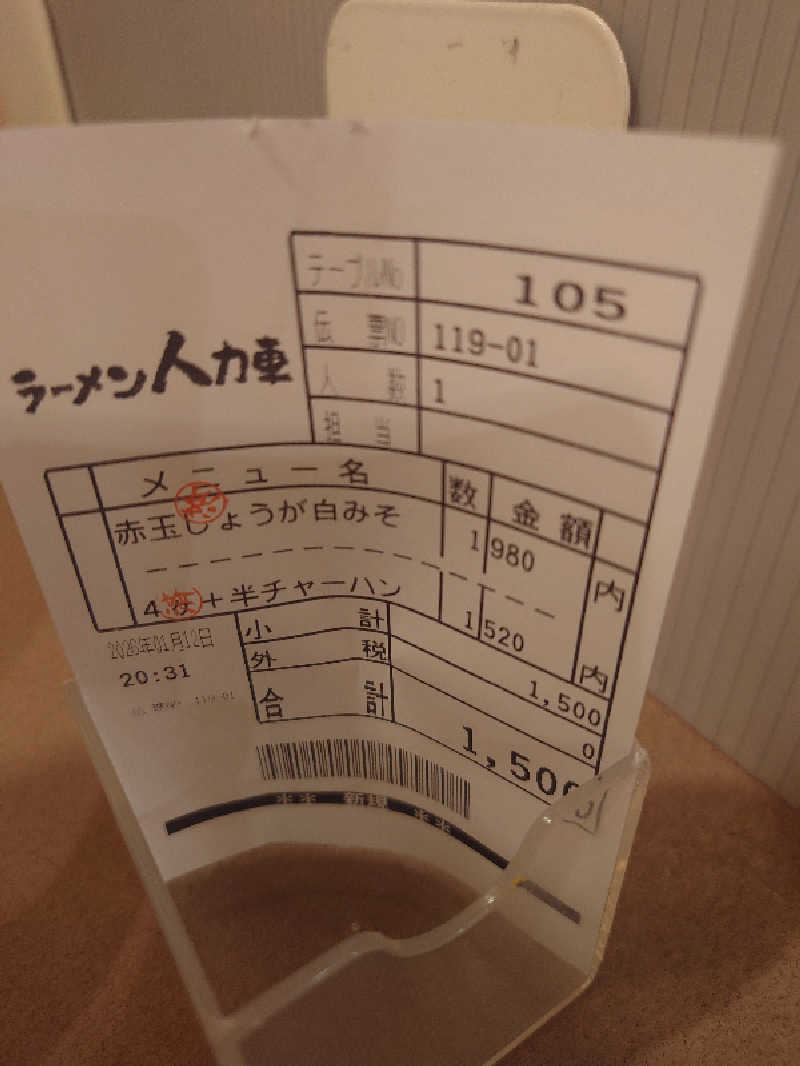 テーブルNo 105
伝票NO 119-01
ラーメン人力車
人数 1
担当
メニュー名 数 金額
赤玉しょうが白みそ 1 980 内
4 +半チャーハン 1 520 内
小計 1,500
2026年01月12日
外税 0
20:31
合計 1,500
119-01
** 新規 **